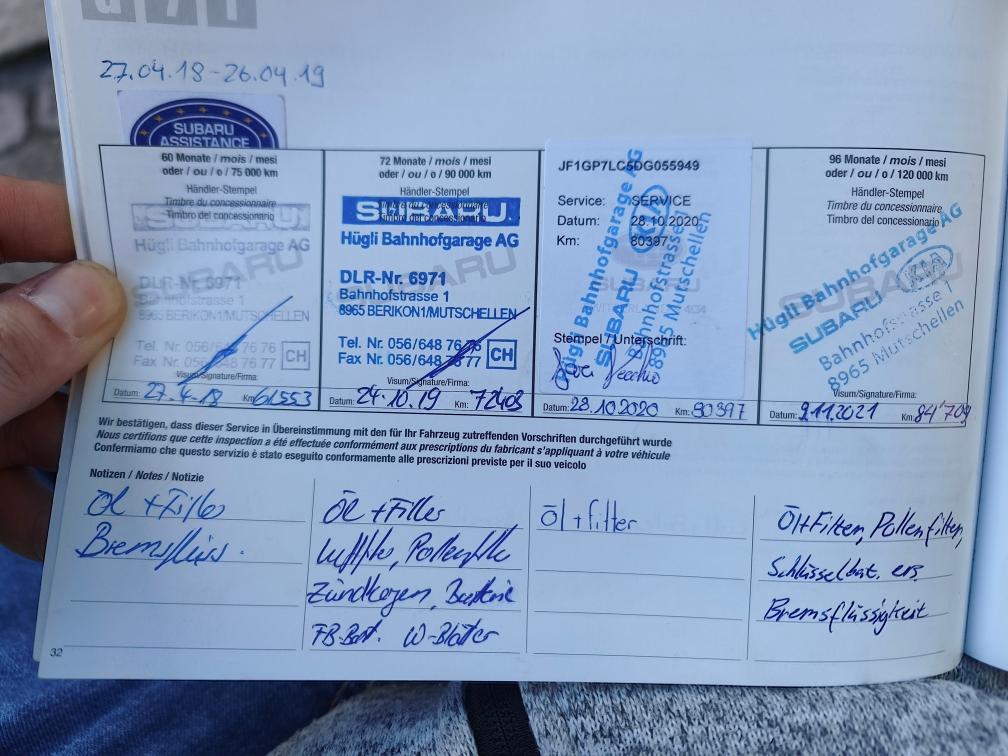 27.04.18-26.04.19
SUBARU
ASSISTANCE
60 Monate / mois / mesi
oder / ou / o / 75 000 km
Händler-Stempel
Timbre du concessionnaire
Timbro del concessionario
SUBARU
Hügli Bahnhofgarage AG
DLR-Nr. 6971
Bahnhofstrasse 1
8965 BERIKON1/MUTSCHELLEN
Tel. Nr. 056/648 76 76
Fax Nr. 056/648 76 77
CH
Visum/Signature/Firma:
Datum: 27.4.18 Km: 61553
72 Monate / mois / mesi
oder / ou / o / 90 000 km
Händler-Stempel
Timbre du concessionnaire
Timbro del concessionario
SUBARU
Hügli Bahnhofgarage AG
DLR-Nr. 6971
Bahnhofstrasse 1
8965 BERIKON1/MUTSCHELLEN
Tel. Nr. 056/648 76 76
Fax Nr. 056/648 76 77
CH
Visum/Signature/Firma:
Datum: 24.10.19 Km: 72403
JF1GP7LC5DG055949
Service: SERVICE
Datum: 28.10.2020
Km: 80397
Hügli Bahnhofgarage AG
SUBARU KIA
Bahnhofstrasse
8965 Mutschellen
Stempel / Unterschrift:
Datum: 28.10.2020 Km: 80397
96 Monate / mois / mesi
oder / ou / o / 120 000 km
Händler-Stempel
Timbre du concessionnaire
Timbro del concessionario
Hügli Bahnhofgarage AG
SUBARU KIA
Bahnhofstrasse 1
8965 Mutschellen
Visum/Signature/Firma:
Datum: 9.11.2021 Km: 84'709
Wir bestätigen, dass dieser Service in Übereinstimmung mit den für Ihr Fahrzeug zutreffenden Vorschriften durchgeführt wurde
Nous certifions que cette inspection a été effectuée conformément aux prescriptions du fabricant s'appliquant à votre véhicule
Confermiamo che questo servizio è stato eseguito conformamente alle prescrizioni previste per il suo veicolo
Notizen / Notes / Notizie
Öl + Filter
Bremsflüss.
Öl + Filter
Luftfilter, Pollenfilter
Zündkerzen, Batterie
FB-Batt. W-Blätter
Öl + filter
Öl+Filter, Pollenfilter,
Schlüsselbat. ers.
Bremsflüssigkeit
32